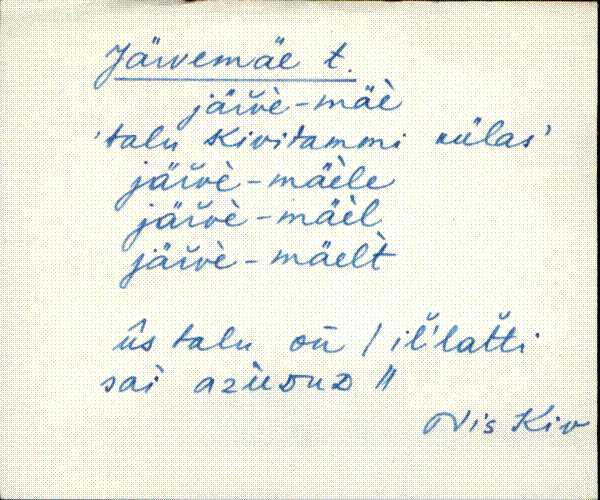 Järvemäe t.
järvè-mäè
'talu Kivitammi külas'
järvè-mäèle
järvè-mäèl
järvè-mäelt̀
ûs talu oñ / il̆'lat̆ti
sai azùDuD //
Nis Kiv